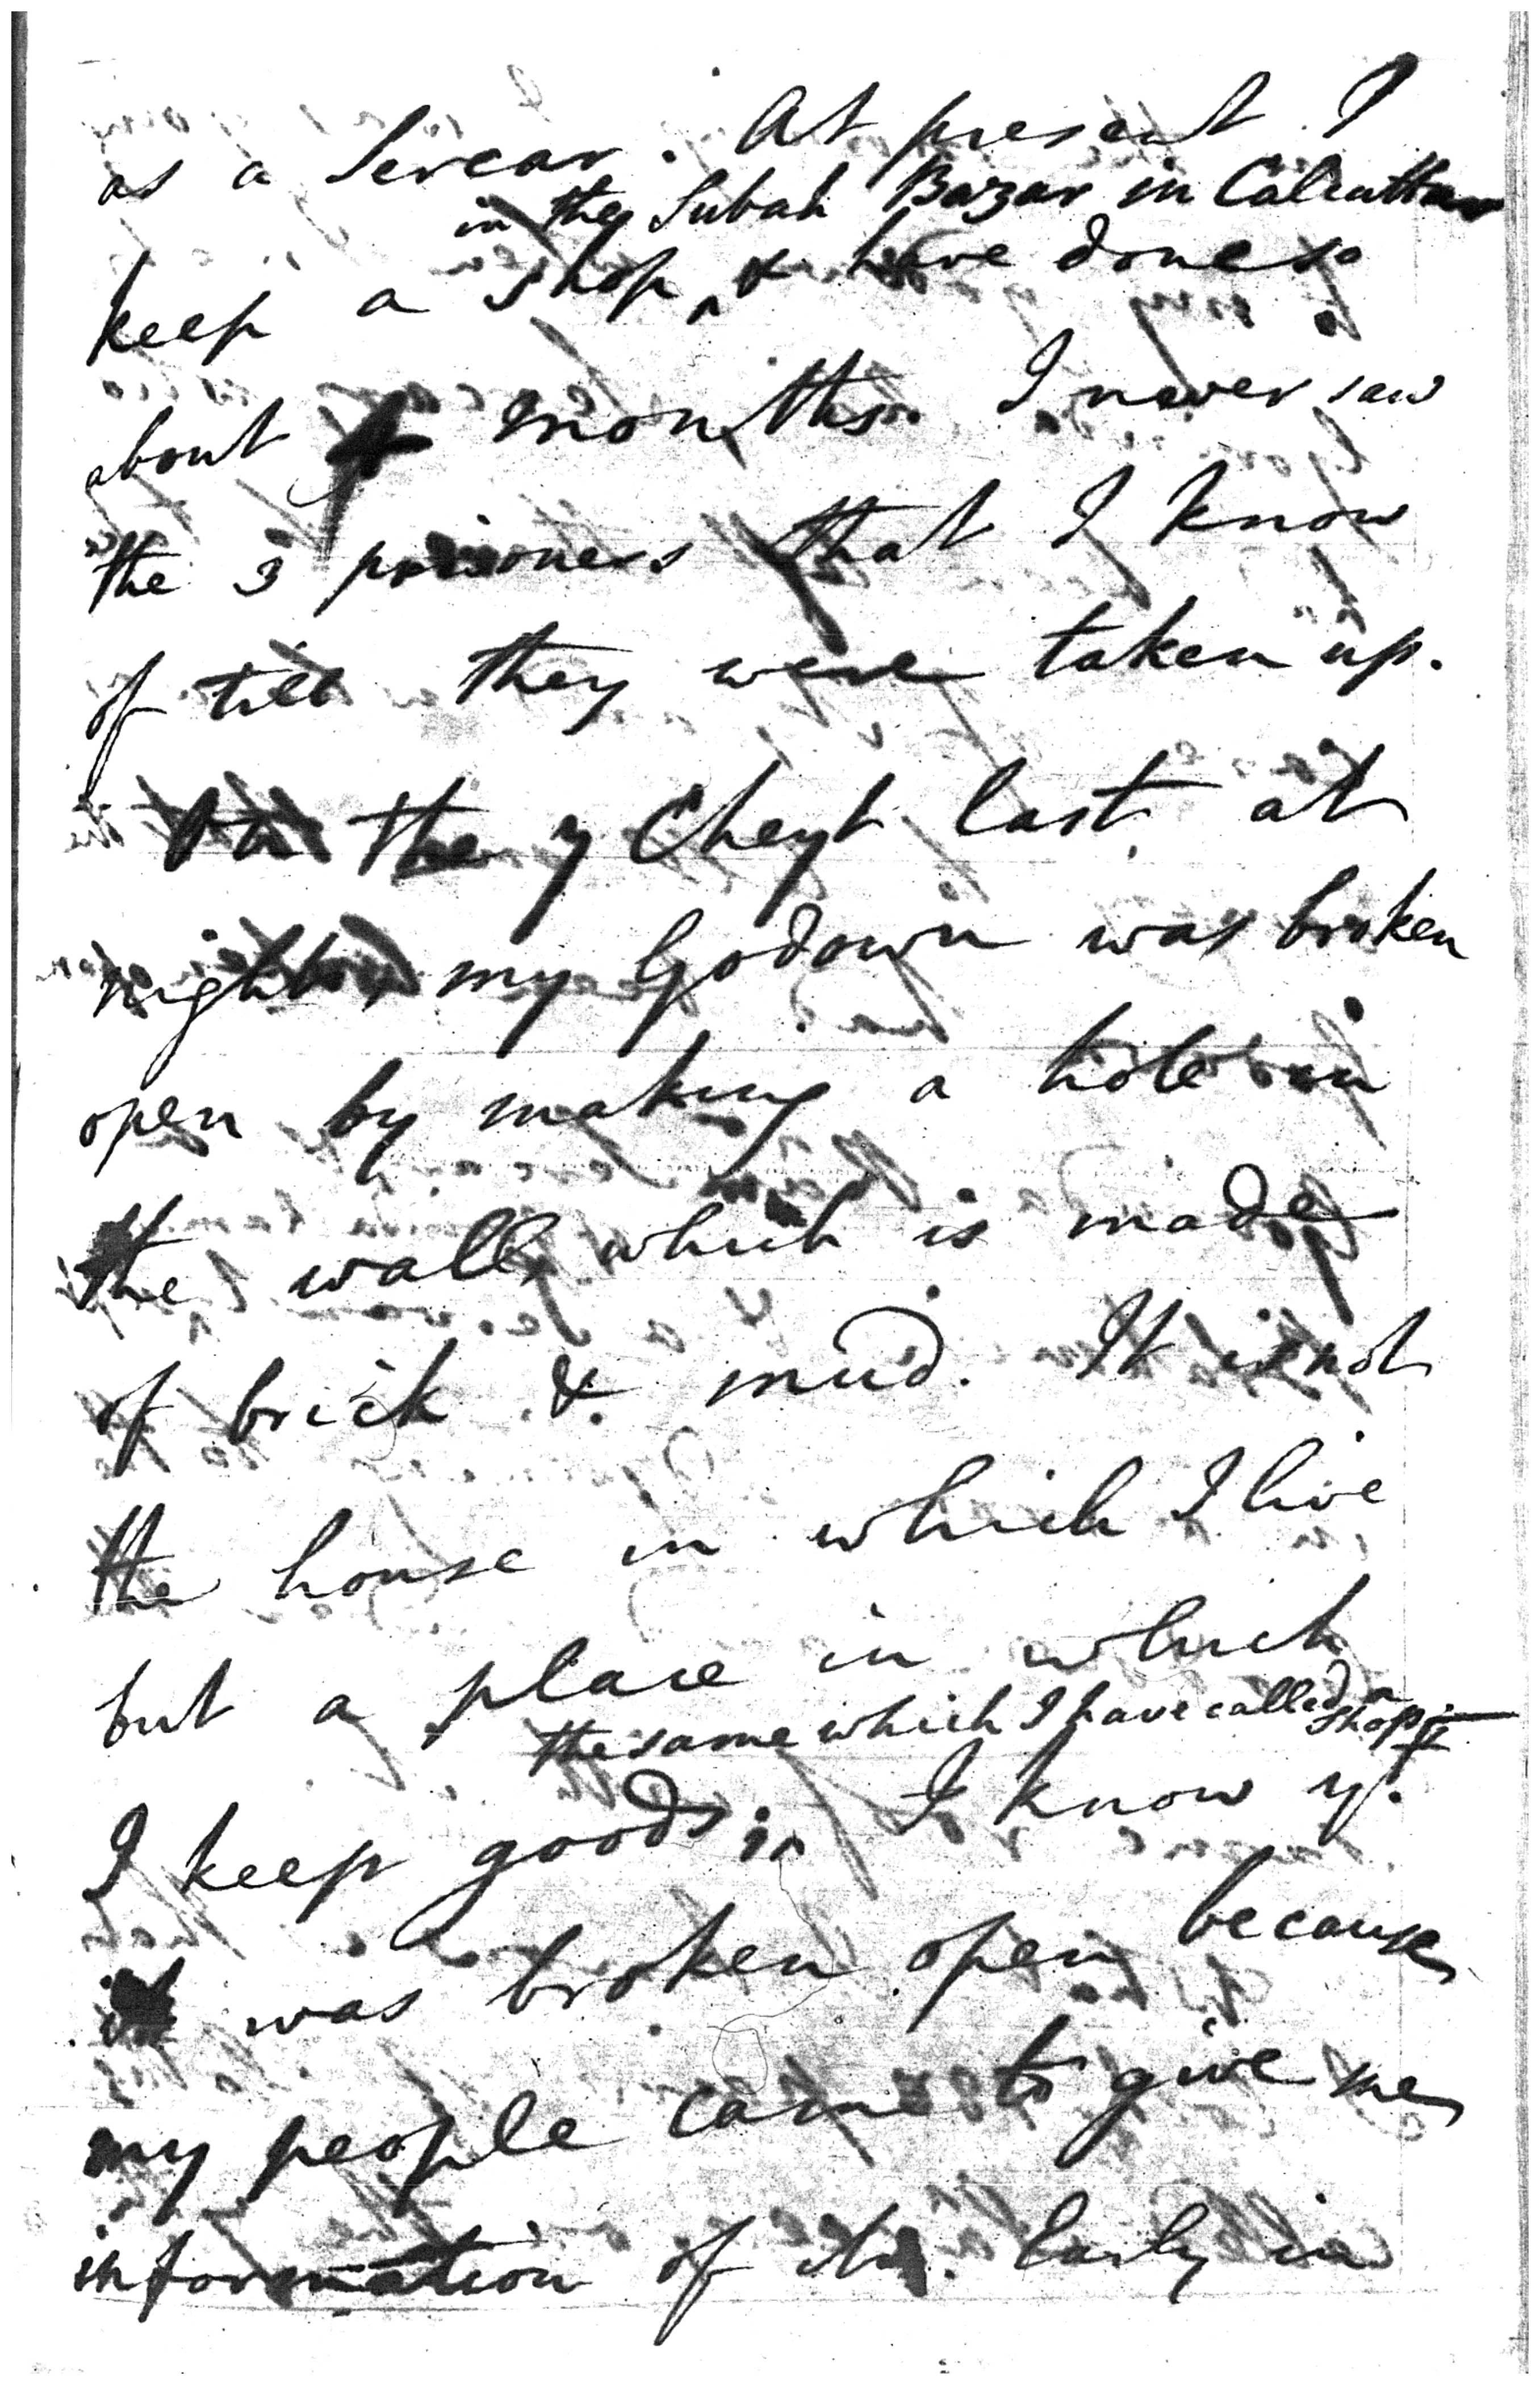 as a Sercar. At present I
in the Subah Bazar in Calcutta
keep a shop ^ & have done so
about 4 months. I never saw
the 3 prisoners that I know
of till they were taken up.
On the 7 Cheyt last at
night my Godown was broken
open by making a hole in
the wall, which is made
of brick & mud. It is not
the house in which I live
but a place in which
the same which I have called a shop
I keep goods; ^ I know yt
it was broken open because
my people came to give me
information of it. Early in